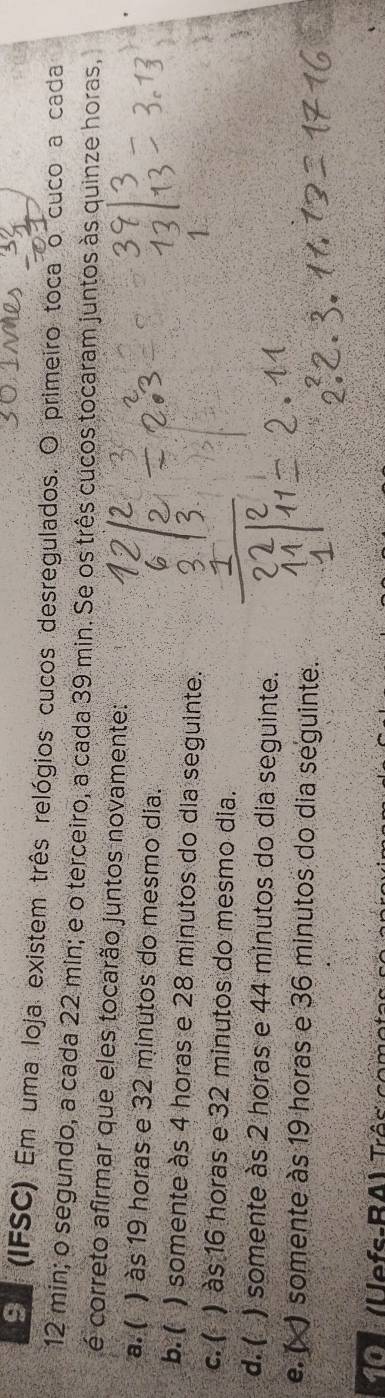 30. 1mes
9 (IFSC) Em uma loja existem três relógios cucos desregulados. O primeiro toca o cuco a cada
12 min; o segundo, a cada 22 min; e o terceiro, a cada 39 min. Se os três cucos tocaram juntos às quinze horas,
é correto afirmar que eles tocarão juntos novamente:
a. ( ) às 19 horas e 32 minutos do mesmo dia.
b. ( ) somente às 4 horas e 28 minutos do dia seguinte.
c. ( ) às 16 horas e 32 minutos do mesmo dia.
d. ( ) somente às 2 horas e 44 minutos do dia seguinte.
e. (x) somente às 19 horas e 36 minutos do dia seguinte.
12 | 2
6 | 2 = 2².3
3 | 3
1
39 | 3 -
13 | 13 - 3.13
1
22 | 2
11 | 11 = 2.11
1
2².3.11.13 = 1716
10 (Uefs-BA) Três cometas se